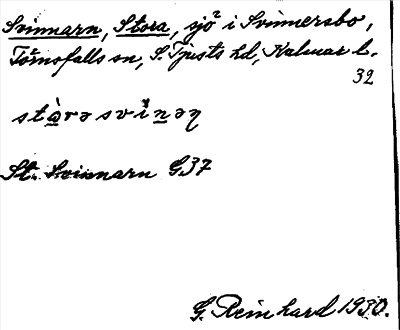 Svinnarn, Stora, sjö i Svinnersbo,
Törnsfalls sn, S. Tjusts hd, Kalmar l.
32
stòrə svinəɳ
St. Svinnarn G37
G. Reinhard 1930.